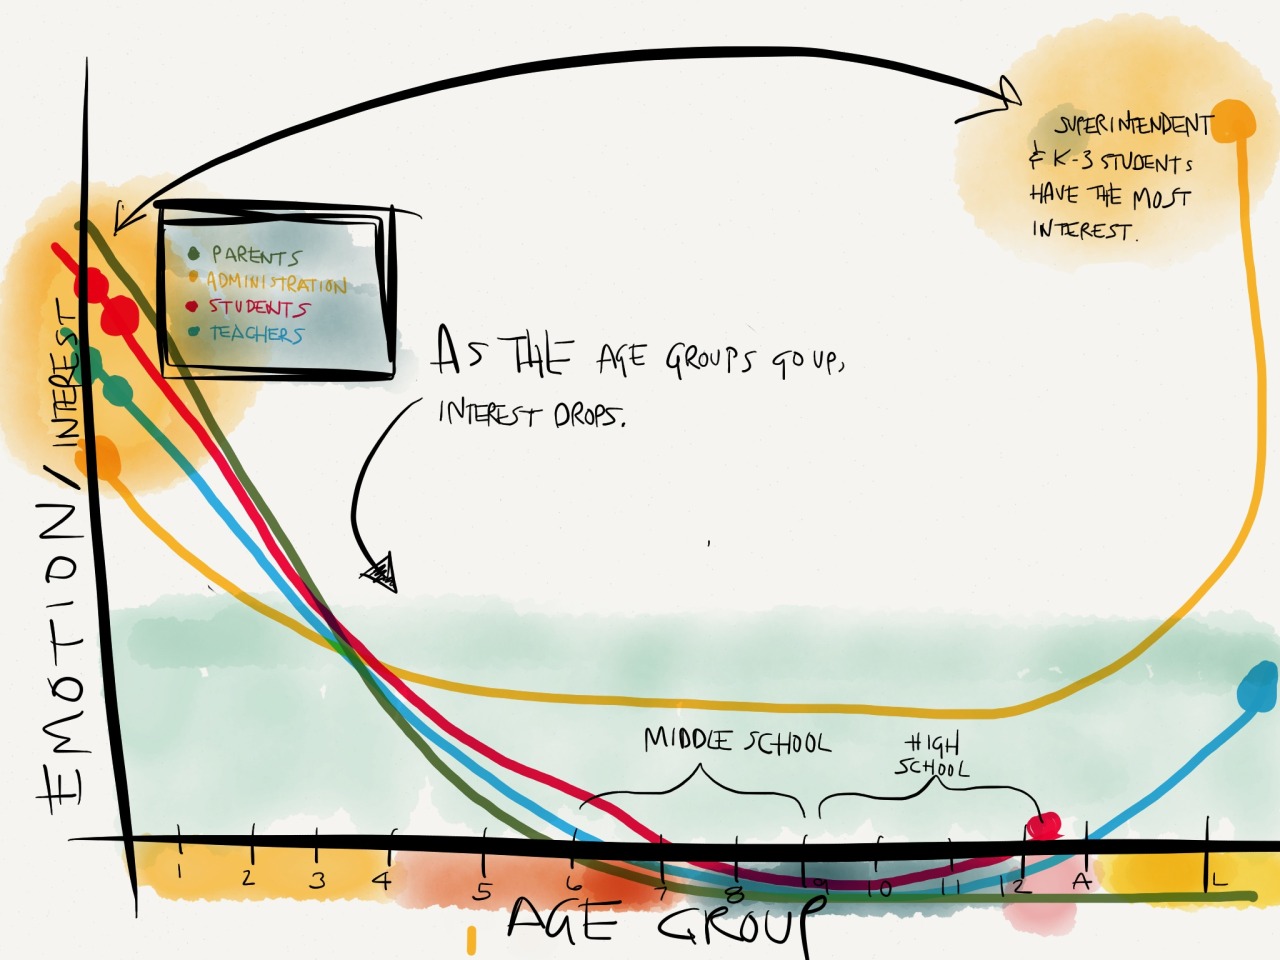 SUPERINTENDENT
& K-3 STUDENTS
HAVE THE MOST
INTEREST.
PARENTS
ADMINISTRATION
STUDENTS
TEACHERS
AS THE AGE GROUPS GO UP,
INTEREST DROPS.
EMOTION/INTEREST
MIDDLE SCHOOL
HIGH
SCHOOL
1 2 3 4 5 6 7 8 9 10 11 12 A L
AGE GROUP